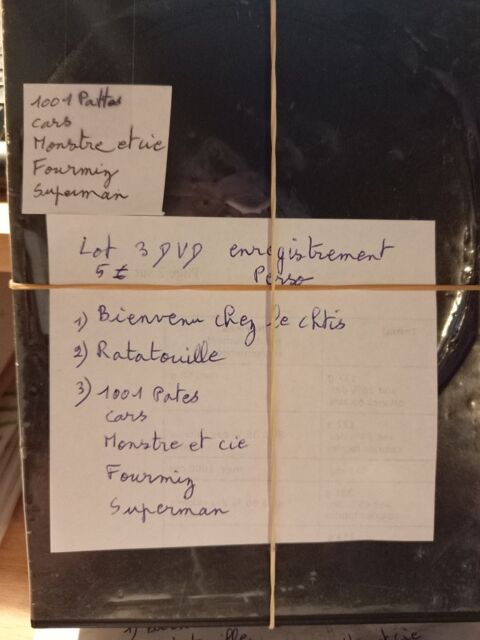 1001 Pattes
cars
Monstre et cie
Fourmiz
Superman
Lot 3 DVD enregistrement
5 £ Perso
1) Bienvenu chez le chtis
2) Ratatouille
3) 1001 Pates
cars
Monstre et cie
Fourmiz
Superman